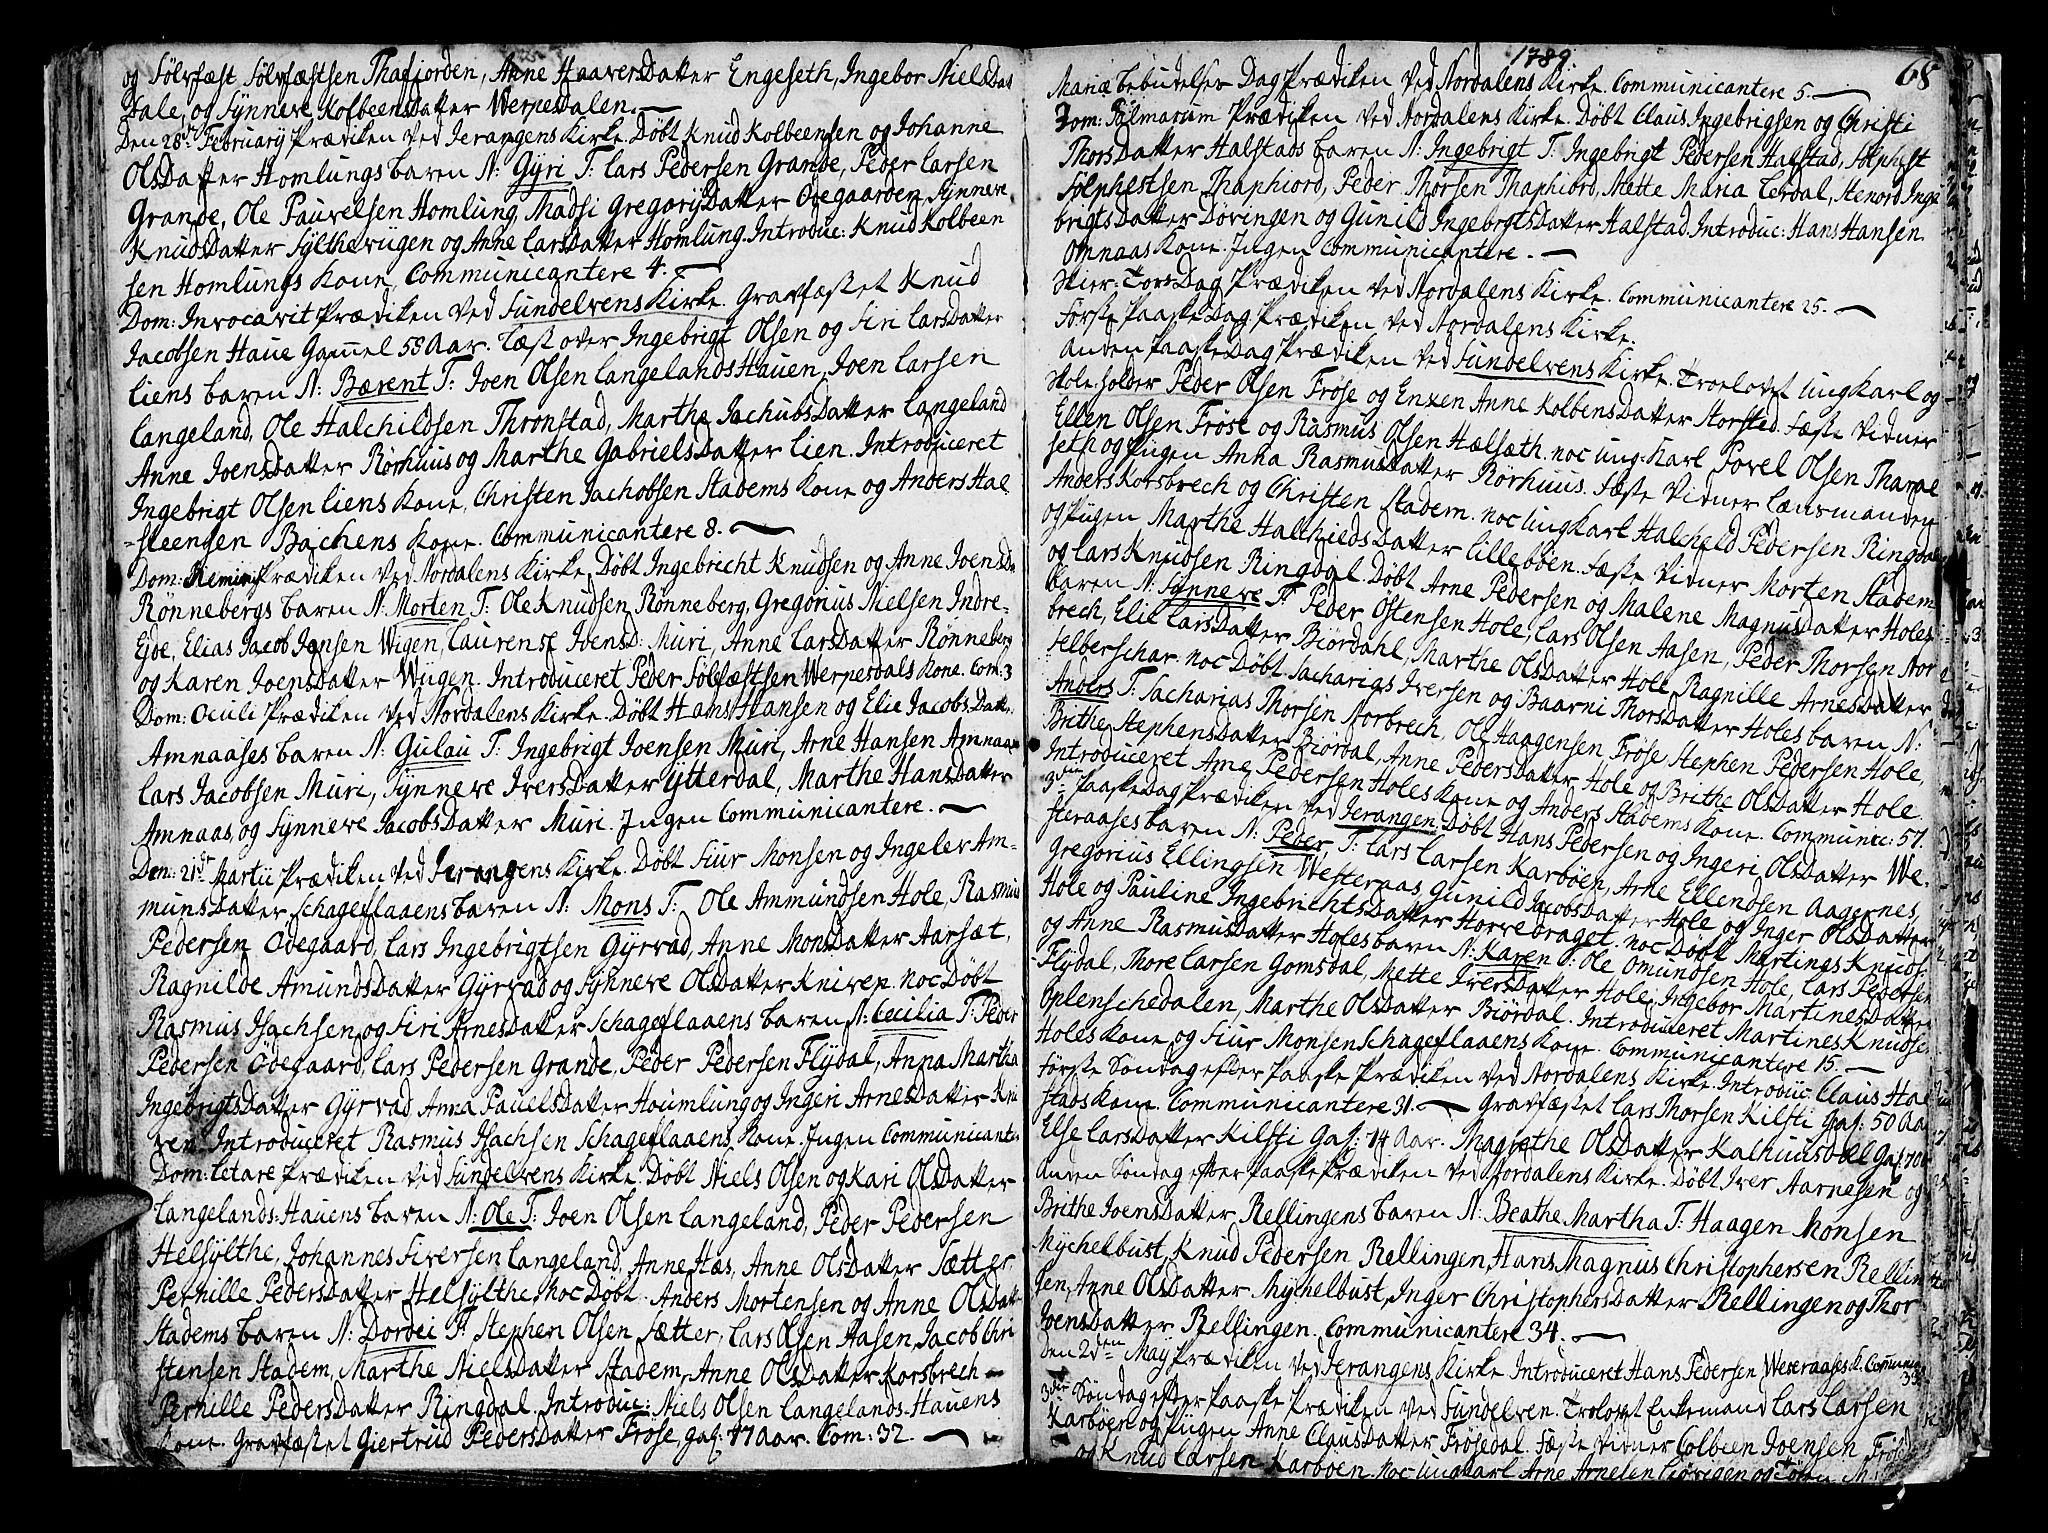 og Sølvfæst Sølvfæstsen Thafjorden, Anne HaaversDatter Engeseth, Ingebor NielsDat
Dale, og Synneve KolbeensDatter Werpesdalen.
Den 28de February Prædiken ved Jerangens Kirke. Døbt Knud Kolbeensen og Johanne
OlsDatter Homlungs baren N: Gÿri T: Lars Pedersen Grande, Peder Larsen
Grande, Ole Pauvelsen Homlung, Madsi GregorÿDatter Ødegaarden, Synneve
KnudsDatter Sÿlthevügen og Anne LarsDatter Homlung. Introduc: Knud Kolbeen
sen Homlungs Kone, Communicantere 4.
Dom: Invocavit Prædiken ved Sundelvens Kirke. Gravfæstet Knud
Jacobsen Haue Gamel 58 Aar. Læst over Ingebrigt Olsen og Siri LarsDatter
Liens baren N: Bærent T: Joen Olsen LangelandsHauen, Joen Larsen
Langeland, Ole Halchildsen Thronstad, Marthe JachubsDatter Langeland
Anne JoensDatter Rørhuus og Marthe GabrielsDatter Lien. Introduceret
Ingebrigt Olsen Liens Kone, Christen Jachobsen Stadems Kone og Anders Hal
steensen Bachens Kone. Communicantere 8.
Dom: Reminis Prædiken ved Nordalens Kirke, Døbt Ingebricht Knudsen og Anne JoensDr
Rønnebergs baren N: Morten T: Ole Knudsen Rønneberg, Gregorius Nielsen Indre-
Ejde, Elias Jacob Jonsen Wigen, Laurense JoensD: Muri, Anne LarsDatter Rønneberg
og Karen JoensDatter Wügen. Introduceret Peder Sølfæstsen Werpesdals Kone. Com: 3
Dom: Oculi Prædiken ved Nordalens Kirke. Døbt Hans Hansen og Elie JacobsDatter
Amnaases baren N: Gulau T: Ingebrigt Joensen Muri, Arne Hansen Amnaas
Lars Jacobsen Muri, Synneve IversDatter Ytterdal, Marthe HansDatter
Amnaas, og Synneve JacobsDatter Muri. Ingen Communicantere.
Den: 21de Martii Prædiken ved Jerangens Kirke. Døbt Siur Monsen og Ingelev Am-
munsDatter Schageflaaens baren N: Mons T: Ole Ammundsen Hole, Rasmus
Pedersen Ødegaard, Lars Ingebrigtsen Gÿrvad, Anne MonsDatter Aarsæt,
Ragnilde AmundsDatter Gÿrvad og Synneve OlsDatter Kniven. noc Døbt
Rasmus Isachsen og Siri ArnesDatter Schageflaaens baren N: Cecilia T: Peder
Pedersen Ødegaard, Lars Pedersen Grande, Peder Pedersen Flÿdal, Anna Martha
IngebrigtsDatter Gÿrvad Anna PauelsDatter Houmlung og Ingeri ArnesDatter Kni
ven Introduceret Rasmus Isachsen Schageflaaens Kone. Ingen Communicant:
Dom: Letare Prædiken ved Sundelvens Kirke. Døbt Niels Olsen og Kari OlsDatter
Langelands-Hauens baren N: Ole T: Joen Olsen Langeland, Peder Pedersen
Helsÿlthe, Johannes Siversen Langeland, Anne Hæs, Anne OlsDatter Sætter
Pernille PedersDatter Helsÿlthe, Noc Døbt Anders Mortensen og Anne OlsDatt
Stadems baren N: Dordei T: Stephen Olsen Sætter, Lars Olsen Aasen, Jacob Chri
stensen Stadem, Marthe NielsDatter Stadem, Anne OlsDatter Korsbrech
Pernille PedersDatter Ringdal. Introduc: Niels Olsen Langelands-Hauens
Kone. Gravfæstet Giertrud PedersDatter Frøse, gal: 77 Aar. Com: 32.
1789
68
Mariæ Bebudelses Dag Prædiken ved Nordalens Kirke. Communicantere 5.
Dom: Palmarum Prædiken ved Nordalens Kirke. Døbt Claus Ingebrigsen og Christi
ThorsDatter Halstads baren N: Ingebrigt T: Ingebrigt Pedersen Halstad, Sølphest
Sølphestsen Thaphiord, Peder Thorsen Thaphiord, Mette Maria Lerdal, Henord Inge
brigtsDatter Døvingen og Gunild IngebrgtsDatter Halstad. Introduc: Hans Hansen
Omnaas Kone. Ingen Communicantere.
Skier-TorsDag Prædiken ved Nordalens Kirke. Communicantere 25.
Første PaaskeDag Prædiken ved Nordalens Kirke.
Anden PaaskeDag Prædiken ved Sundelvens Kirke. Troelovet ungKarl og
Skole-holder Peder Olsen Frøse og Enken Anne KolbensDatter Storsted. Fæste Vidner
Ellen Olsen Frøse og Rasmus Olsen Hælsæth. noc ung-Karl Povel Olsen Tharal
seth og Pugen Anna RasmusDatter Rørhuus. Fæste Vidner Lænsmanden
Anders Korsbrech og Christen Stadem. noc ungKarl Halcheld Pedersen Ringdal
og Pugen Marthe HalchieldsDatter Lillebøen. Fæste Vidner Morten Stadem
og Lars Knudsen Ringdal. Døbt Arne Pedersen og Malene MagnusDatter Holes
baren N: Synneve T: Peder Østensen Hole, Lars Olsen Aasen, Peder Thorsen Nor
brech, Elie LarsDatter Biørdahl, Marthe OlsDatter Hole, Ragnille ArnesDatter
Felberschar. noc Døbt Sacharias Iversen og Baarni ThorsDatter Holes baren N:
Anders T: Sacharias Thorsen Norbrech, Ole Haagensen Frøse, Stephen Pedersen Hole,
Brithe StephensDatter Biørdal, Anne PedersDatter Hole og Brithe OlsDatter Hole.
Introduceret Arne Pedersen Holes Kone og Anders Stadems Kone. Communic: 57.
3die PaaskeDag Prædiken ved Jerangen. Døbt Hans Pedersen og Ingeri OlsDatter We-
steraases baren N: Peder T: Lars Larsen Karbøen, Arne Ellendsen Aagernes,
Gregorius Ellingsen Westeraas, Gunild JacobsDatter Hole og Inger OlsDatter
Hole og Pauline IngebrichtsDatter Horvedraget. noc Døbt Martines Knuds
og Anne RasmusDatter Holes baren N: Karen T: Ole Omundsen Hole, Lars Pedersen
Flÿdal, Thore Larsen Gomsdal, Mette IversDatter Hole, Ingebor MartinesDatter
Oplenschedalen, Marthe OlsDatter Biørdal. Introduceret Martines Knudse
Holes Kone og Siur Monsen Schageflaaens Kone. Communicantere 15.
Første Søndag efter Paaske Prædiken ved Nordalens Kirke. Introduc: Claus Hal
stads Kone. Communicantere 31. Gravfæstet Lars Thorsen Kilsti gal: 50 Aa
Else LarsDatter Kilsti gal: 14 Aar. Magrethe OlsDatter Kalhuusdal gal: 70
Anden Søndag efter Paaske Prædiken ved Nordalens Kirke. Døbt Iver Aarnesen og
Brithe JoensDatter Rellingens baren N: Beathe Martha T: Haagen Monsen
Mÿchelbust, Knud Pedersen Rellingen, Hans Magnus Christophersen Rellin
gen, Anne OlsDatter Mÿchelbust, Inger ChristophersDatter Rellingen og Thor
JoensDatter Rellingen. Communicantere 34.
Den 2den Maÿ Prædiken ved Jerangens Kirke Introduceret Hans Pedersen Weseraases K. Comunic:
33
3die Søndag efter Paaske Prædiken ved Sundelven. Trolovet Enkemand Lars Larsen
Karbøen og Pügen Anne ClausDatter Frøsedal. Fæste Vidner Colbein Joensen Frøse
og Knud Larsen Karbøen. Noc ungkarl Arne Arnesen Liøvigen og